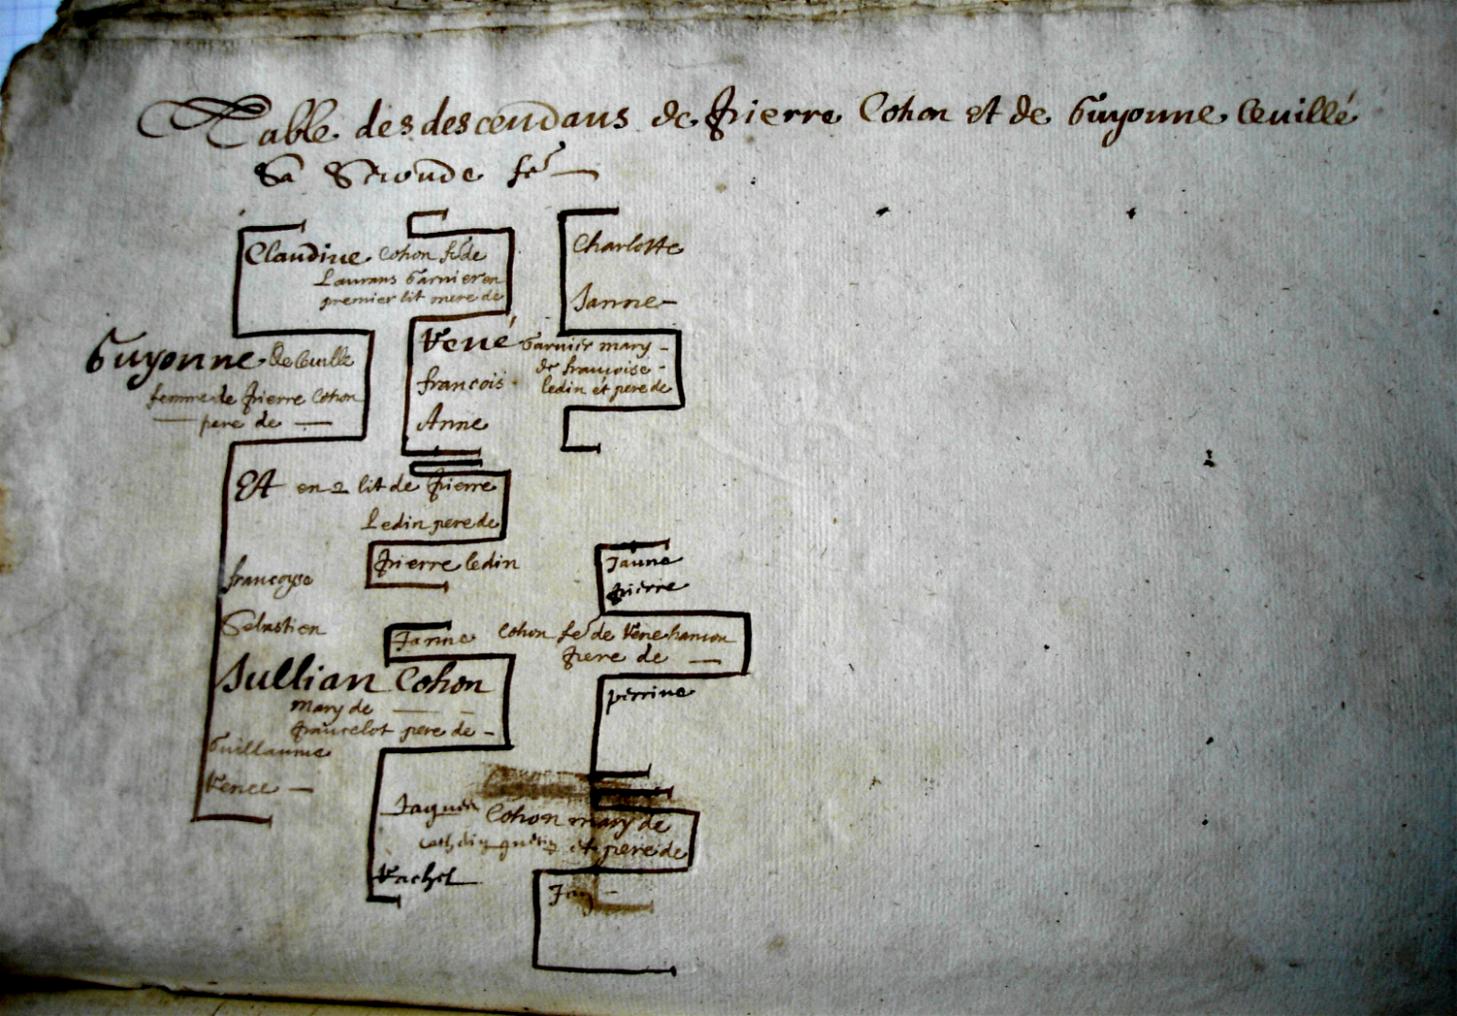 Table des descendans de Pierre Cohon et de Guyonne Ceuillé
Sa Seconde fe
Claudine Cohon fe de
Laurans Garnier en
premier lit mere de
René Garnier mary
de françoise
ledin et pere de
françois
Anne
Charlotte
Janne
Guyonne de Ceuille
femme de Pierre Cohon
pere de
Et en 2 lit de Pierre
Ledin pere de
Pierre ledin
francoyse
Sebastien
Janne Cohon fe de René hanson
pere de
Janne
Pierre
perrine
Jullian Cohon
mary de
françelot pere de
Guillaume
Renee
Jaques Cohon mary de
et pere de
Rachel